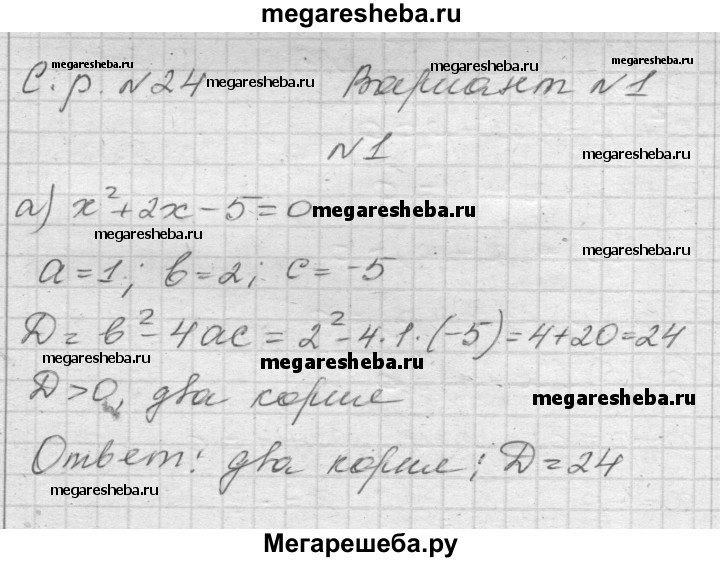 megaresheba.ru
megaresheba.ru megaresheba.ru megaresheba.ru
С.р. №24 megaresheba.ru Вариант №1
№1 megaresheba.ru
а) x²+2x-5=0 megaresheba.ru
megaresheba.ru megaresheba.ru
a=1; b=2; c=-5
D=b²-4ac=2²-4·1·(-5)=4+20=24
megaresheba.ru megaresheba.ru megaresheba.ru
D>0, два корня megaresheba.ru
Ответ: два корня; D=24
megaresheba.ru megaresheba.ru megaresheba.ru
Мегарешеба.ру